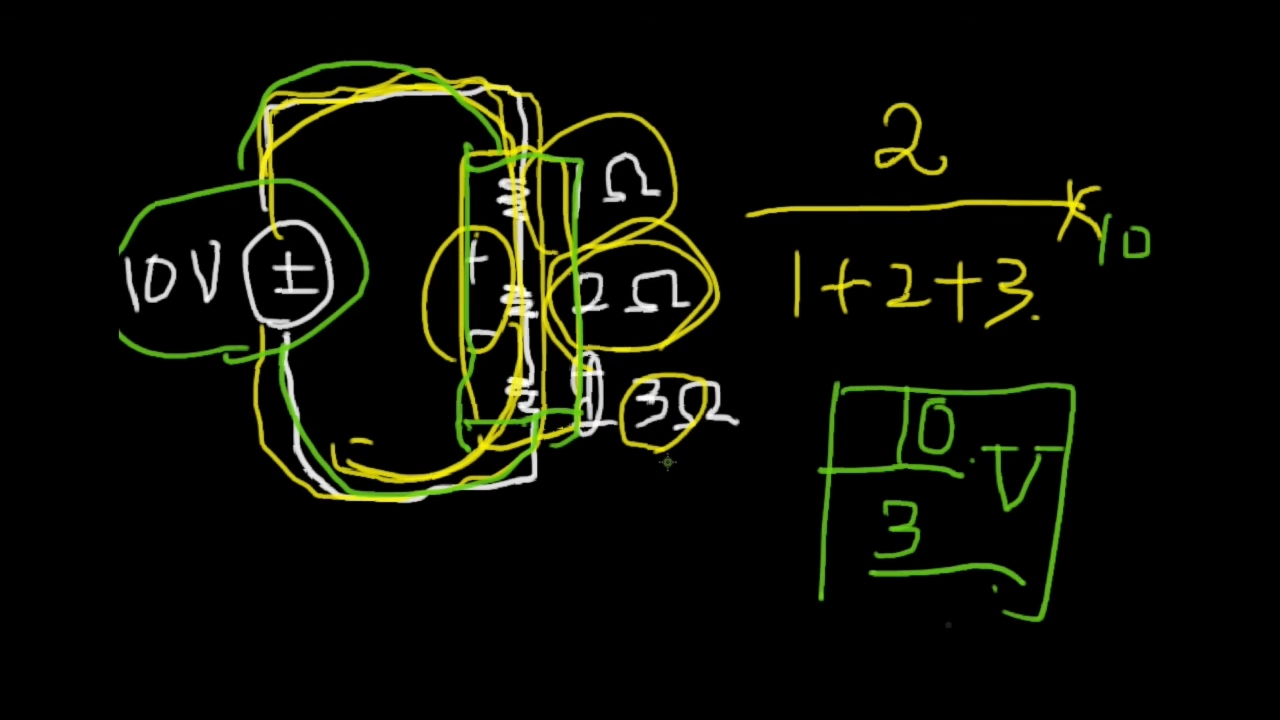 10V ±
Ω
+
2Ω
-
3Ω
2
1+2+3.
× 10
10
3
V